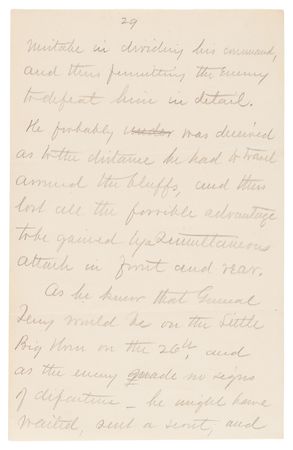 29
mistake in dividing his command,
and thus permitting the Enemy
to defeat him in detail.
He probably was deceived
as to the distance he had to travel
around the bluffs, and thus
lost all the possible advantage
to be gained by a simultaneous
attack in front and rear.
As he knew that General
Terry would be on the Little
Big Horn on the 26th, and
as the enemy made no signs
of departure – he might have
waited, sent a scout, and